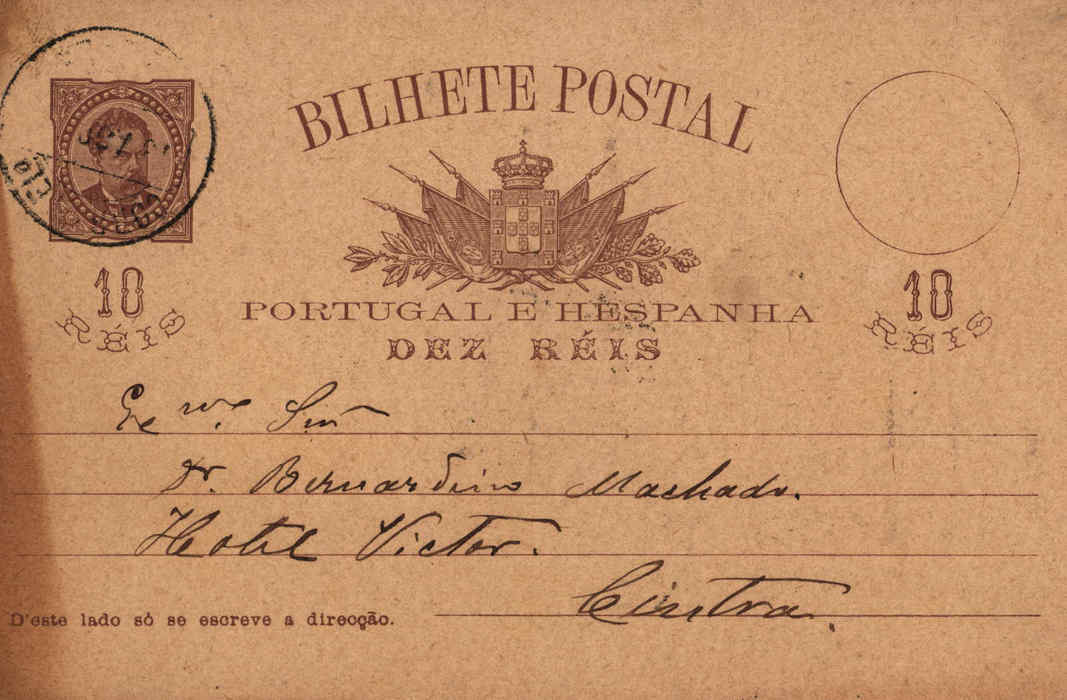 BILHETE POSTAL
PORTUGAL E HESPANHA
DEZ RÉIS
10
RÉIS
10
RÉIS
Exmo. Snr
Dr. Bernardino Machado.
Hotel Victor.
Cintra.
D'este lado só se escreve a direcção.